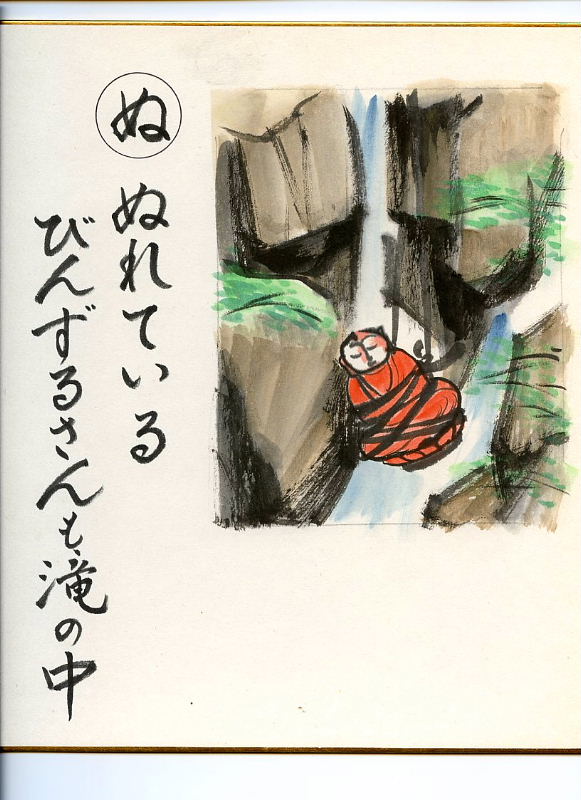 ぬ
ぬれている
びんずるさんも滝の中